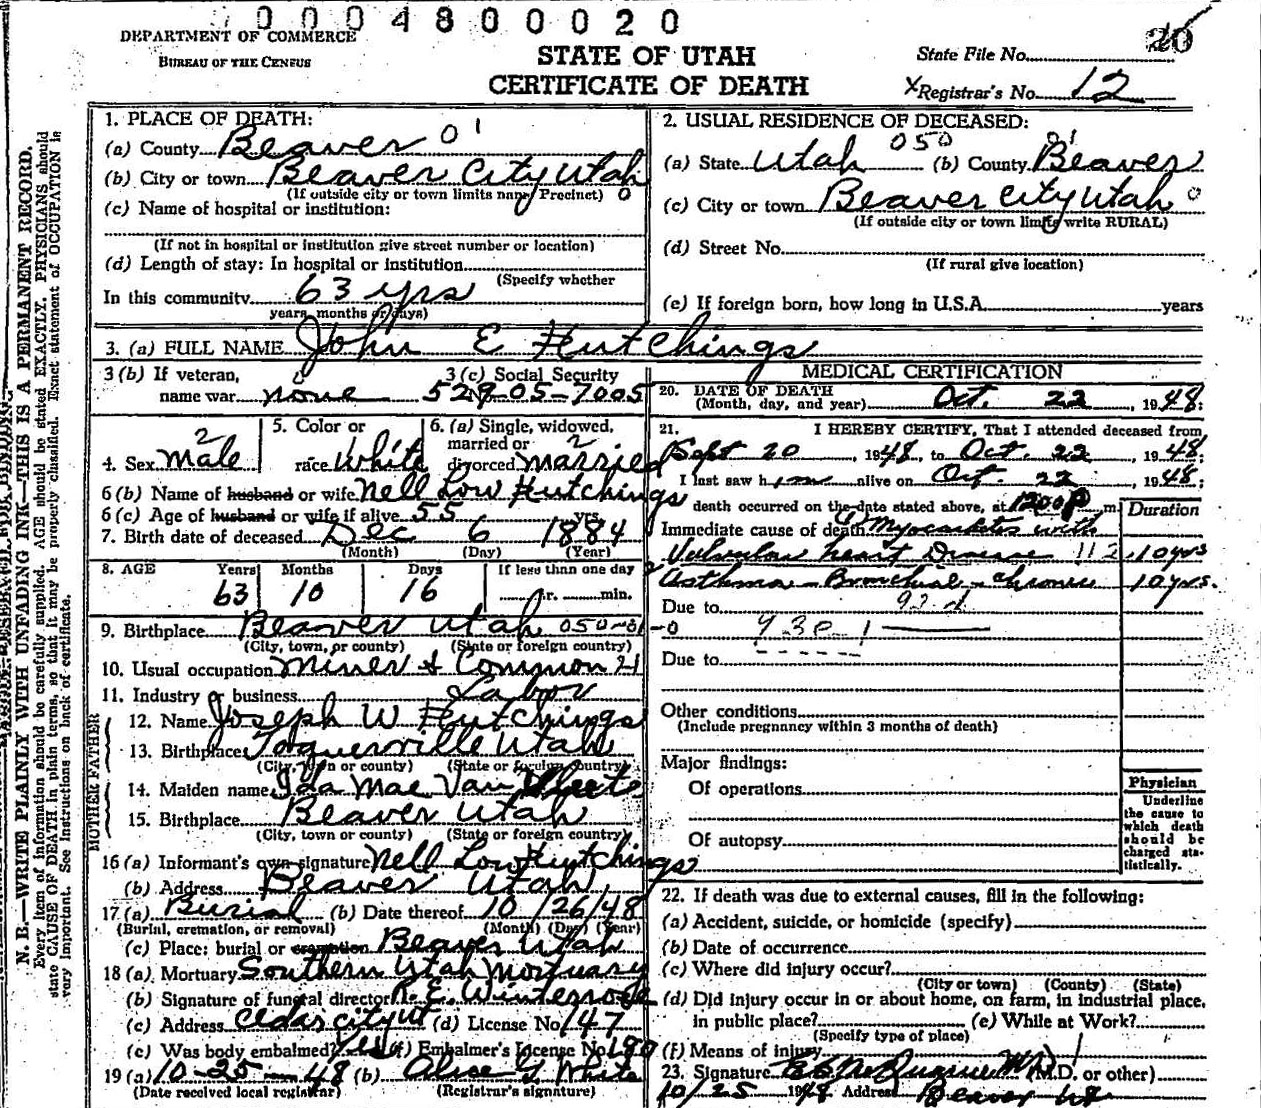 0004800020
DEPARTMENT OF COMMERCE
BUREAU OF THE CENSUS
STATE OF UTAH
CERTIFICATE OF DEATH
State File No. 20
X Registrar's No. 12
N. B.—WRITE PLAINLY WITH UNFADING INK—THIS IS A PERMANENT RECORD.
Every item of information should be carefully supplied. AGE should be stated EXACTLY. PHYSICIANS should
state CAUSE OF DEATH in plain terms, so that it may be properly classified. Exact statement of OCCUPATION is
very important. See instructions on back of certificate.
1. PLACE OF DEATH:
(a) County Beaver 01
(b) City or town Beaver City Utah
(If outside city or town limits name Precinct) 0
(c) Name of hospital or institution:
(If not in hospital or institution give street number or location)
(d) Length of stay: In hospital or institution
(Specify whether
In this community 63 yrs
years, months or days)
2. USUAL RESIDENCE OF DECEASED:
(a) State Utah 050 (b) County Beaver 01
(c) City or town Beaver City Utah 0
(If outside city or town limits write RURAL)
(d) Street No.
(If rural give location)
(e) If foreign born, how long in U.S.A. years
3. (a) FULL NAME John E Hutchings
3 (b) If veteran, 3 (c) Social Security
name war none 529-05-7005
4. Sex Male 2
5. Color or
race White
6. (a) Single, widowed,
married or 2
divorced Married
6 (b) Name of husband or wife Nell Low Hutchings
6 (c) Age of husband or wife if alive 55 yrs.
7. Birth date of deceased Dec 6 1884
(Month) (Day) (Year)
8. AGE Years Months Days If less than one day
63 10 16 hr. min.
9. Birthplace Beaver Utah 050-01-0
(City, town, or county) (State or foreign country)
10. Usual occupation Miner & Common 21
11. Industry or business Labor
FATHER
12. Name Joseph W Hutchings
13. Birthplace Toquerville Utah
(City, town or county) (State or foreign country)
MOTHER
14. Maiden name Ida Mae Van
15. Birthplace Beaver Utah
(City, town or county) (State or foreign country)
16 (a) Informant's own signature Nell Low Hutchings
(b) Address Beaver Utah,
17 (a) Burial (b) Date thereof 10/26/48
(Burial, cremation, or removal) (Month) (Day) (Year)
(c) Place: burial or cremation Beaver Utah
18 (a) Mortuary Southern Utah Mortuary
(b) Signature of funeral director R. E. Winterrose
(c) Address Cedar City Ut (d) License No. 147
(e) Was body embalmed? Yes (f) Embalmer's License No. 190
19 (a) 10-25-48 (b) Alice G White
(Date received local registrar) (Registrar's signature)
MEDICAL CERTIFICATION
20. DATE OF DEATH
(Month, day, and year) Oct. 22, 1948:
21. I HEREBY CERTIFY, That I attended deceased from
Sept 20, 1948, to Oct. 22, 1948;
I last saw him alive on Oct. 22, 1948;
death occurred on the date stated above, at 1200 P m.
Duration
Immediate cause of death Myocarditis with
Valvular heart Disease 112 10 yrs
Asthma - Bronchial - chronic 10 yrs.
Due to
930 1
Due to
Other conditions
(Include pregnancy within 3 months of death)
Major findings:
Of operations
Of autopsy
Physician
Underline
the cause to
which death
should be
charged sta-
tistically.
22. If death was due to external causes, fill in the following:
(a) Accident, suicide, or homicide (specify)
(b) Date of occurrence
(c) Where did injury occur?
(City or town) (County) (State)
(d) Did injury occur in or about home, on farm, in industrial place,
in public place? (e) While at Work?
(Specify type of place)
(f) Means of injury
23. Signature (M.D. or other)
10/25 1948 Address Beaver Ut